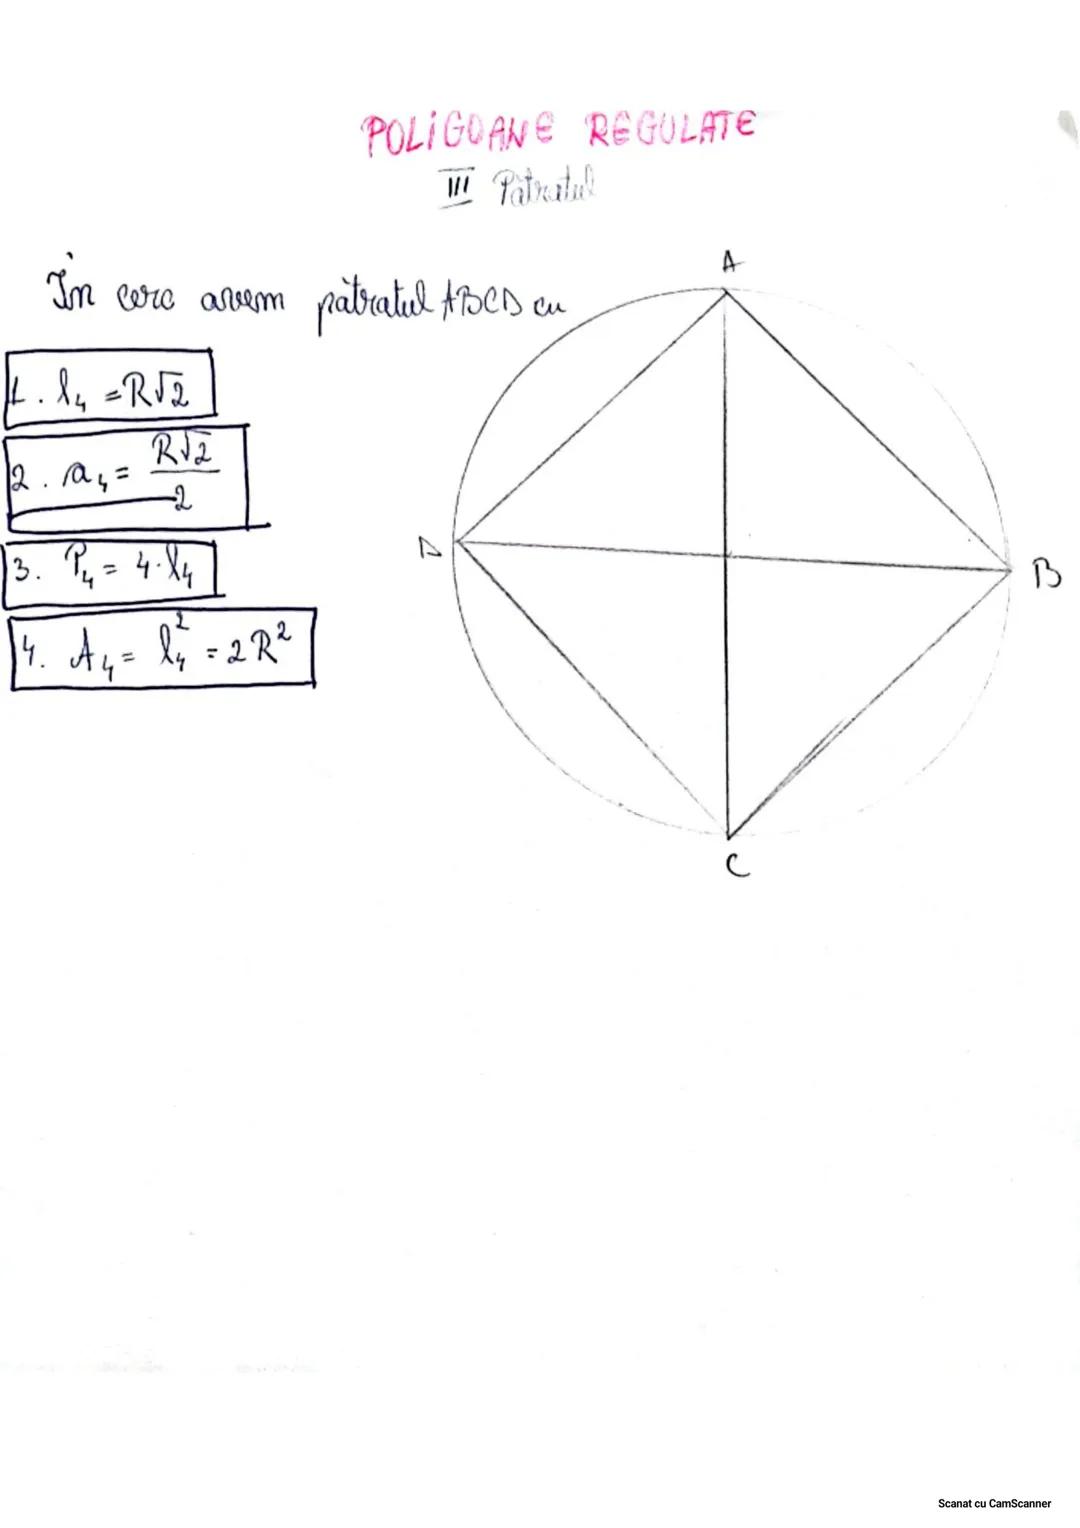 POLIGOANE REGULATE
III Pătratul
În cerc avem pătratul ABCD cu
1. l₄ = R√2
2. a₄ = R√2/2
3. P₄ = 4·l₄
4. A₄ = l₄² = 2R²
A
D
B
C
Scanat cu CamScanner